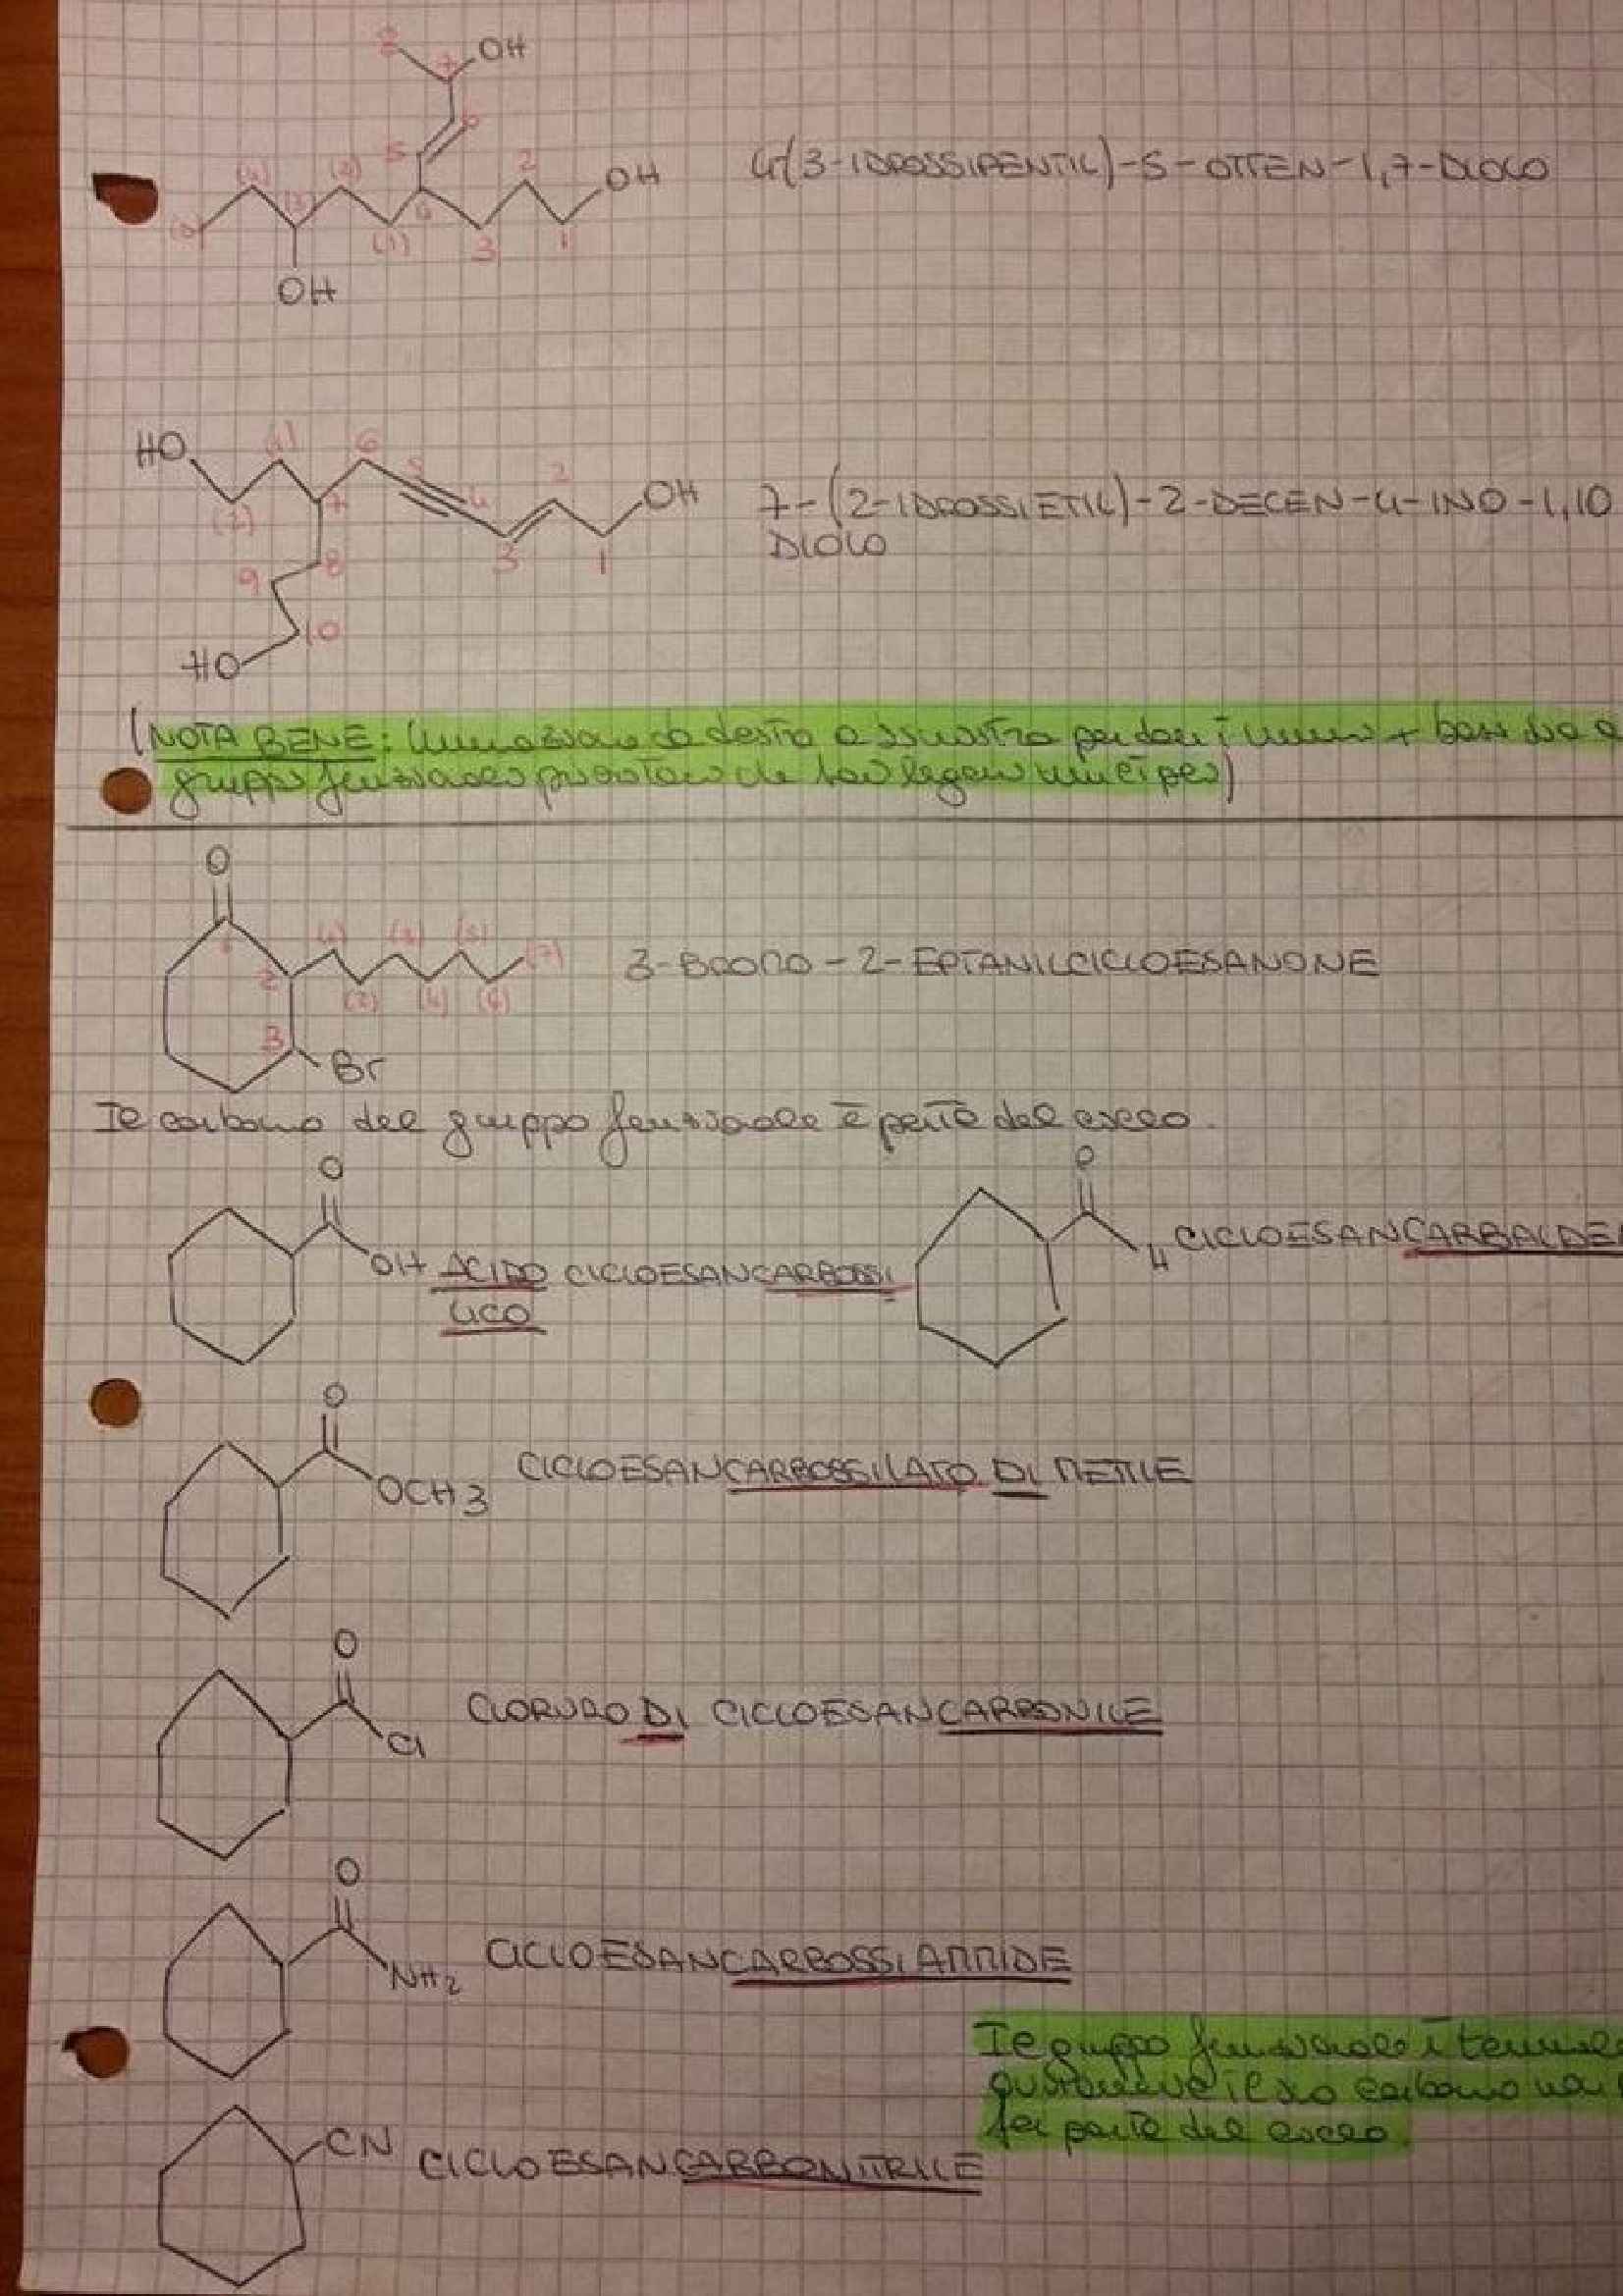 8 7 OH
6
5
(5) (4) (3) (2) (1) 4 3 2 1 OH
OH
4(3-IDROSSIPENTIL)-5-OTTEN-1,7-DIOLO
HO (2) (1) 7 6 5 4 3 2 1 OH
8
9
10
HO
7-(2-IDROSSIETIL)-2-DECEN-4-INO-1,10
DIOLO
(NOTA BENE: numerazione da destra a sinistra per dare i numeri + bassi sia a
gruppo funzionale prioritario che ai legami multipli)
O
1 2 3 (1) (2) (3) (4) (5) (6) (7)
Br
3-BROMO-2-EPTANILCICLOESANONE
Il carbonio del gruppo funzionale è parte del ciclo.
O
OH ACIDO CICLOESANCARBOSSI
LICO
O
H CICLOESANCARBALDE
O
OCH3 CICLOESANCARBOSSILATO DI METILE
O
Cl CLORURO DI CICLOESANCARBONILE
O
NH2 CICLOESANCARBOSSIAMMIDE
Il gruppo funzionale è terminale
il suo carbonio non
fa parte del ciclo.
CN CICLOESANCARBONITRILE